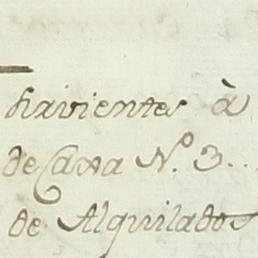 havientes à
de Casa N.º 3..
de Alquilados